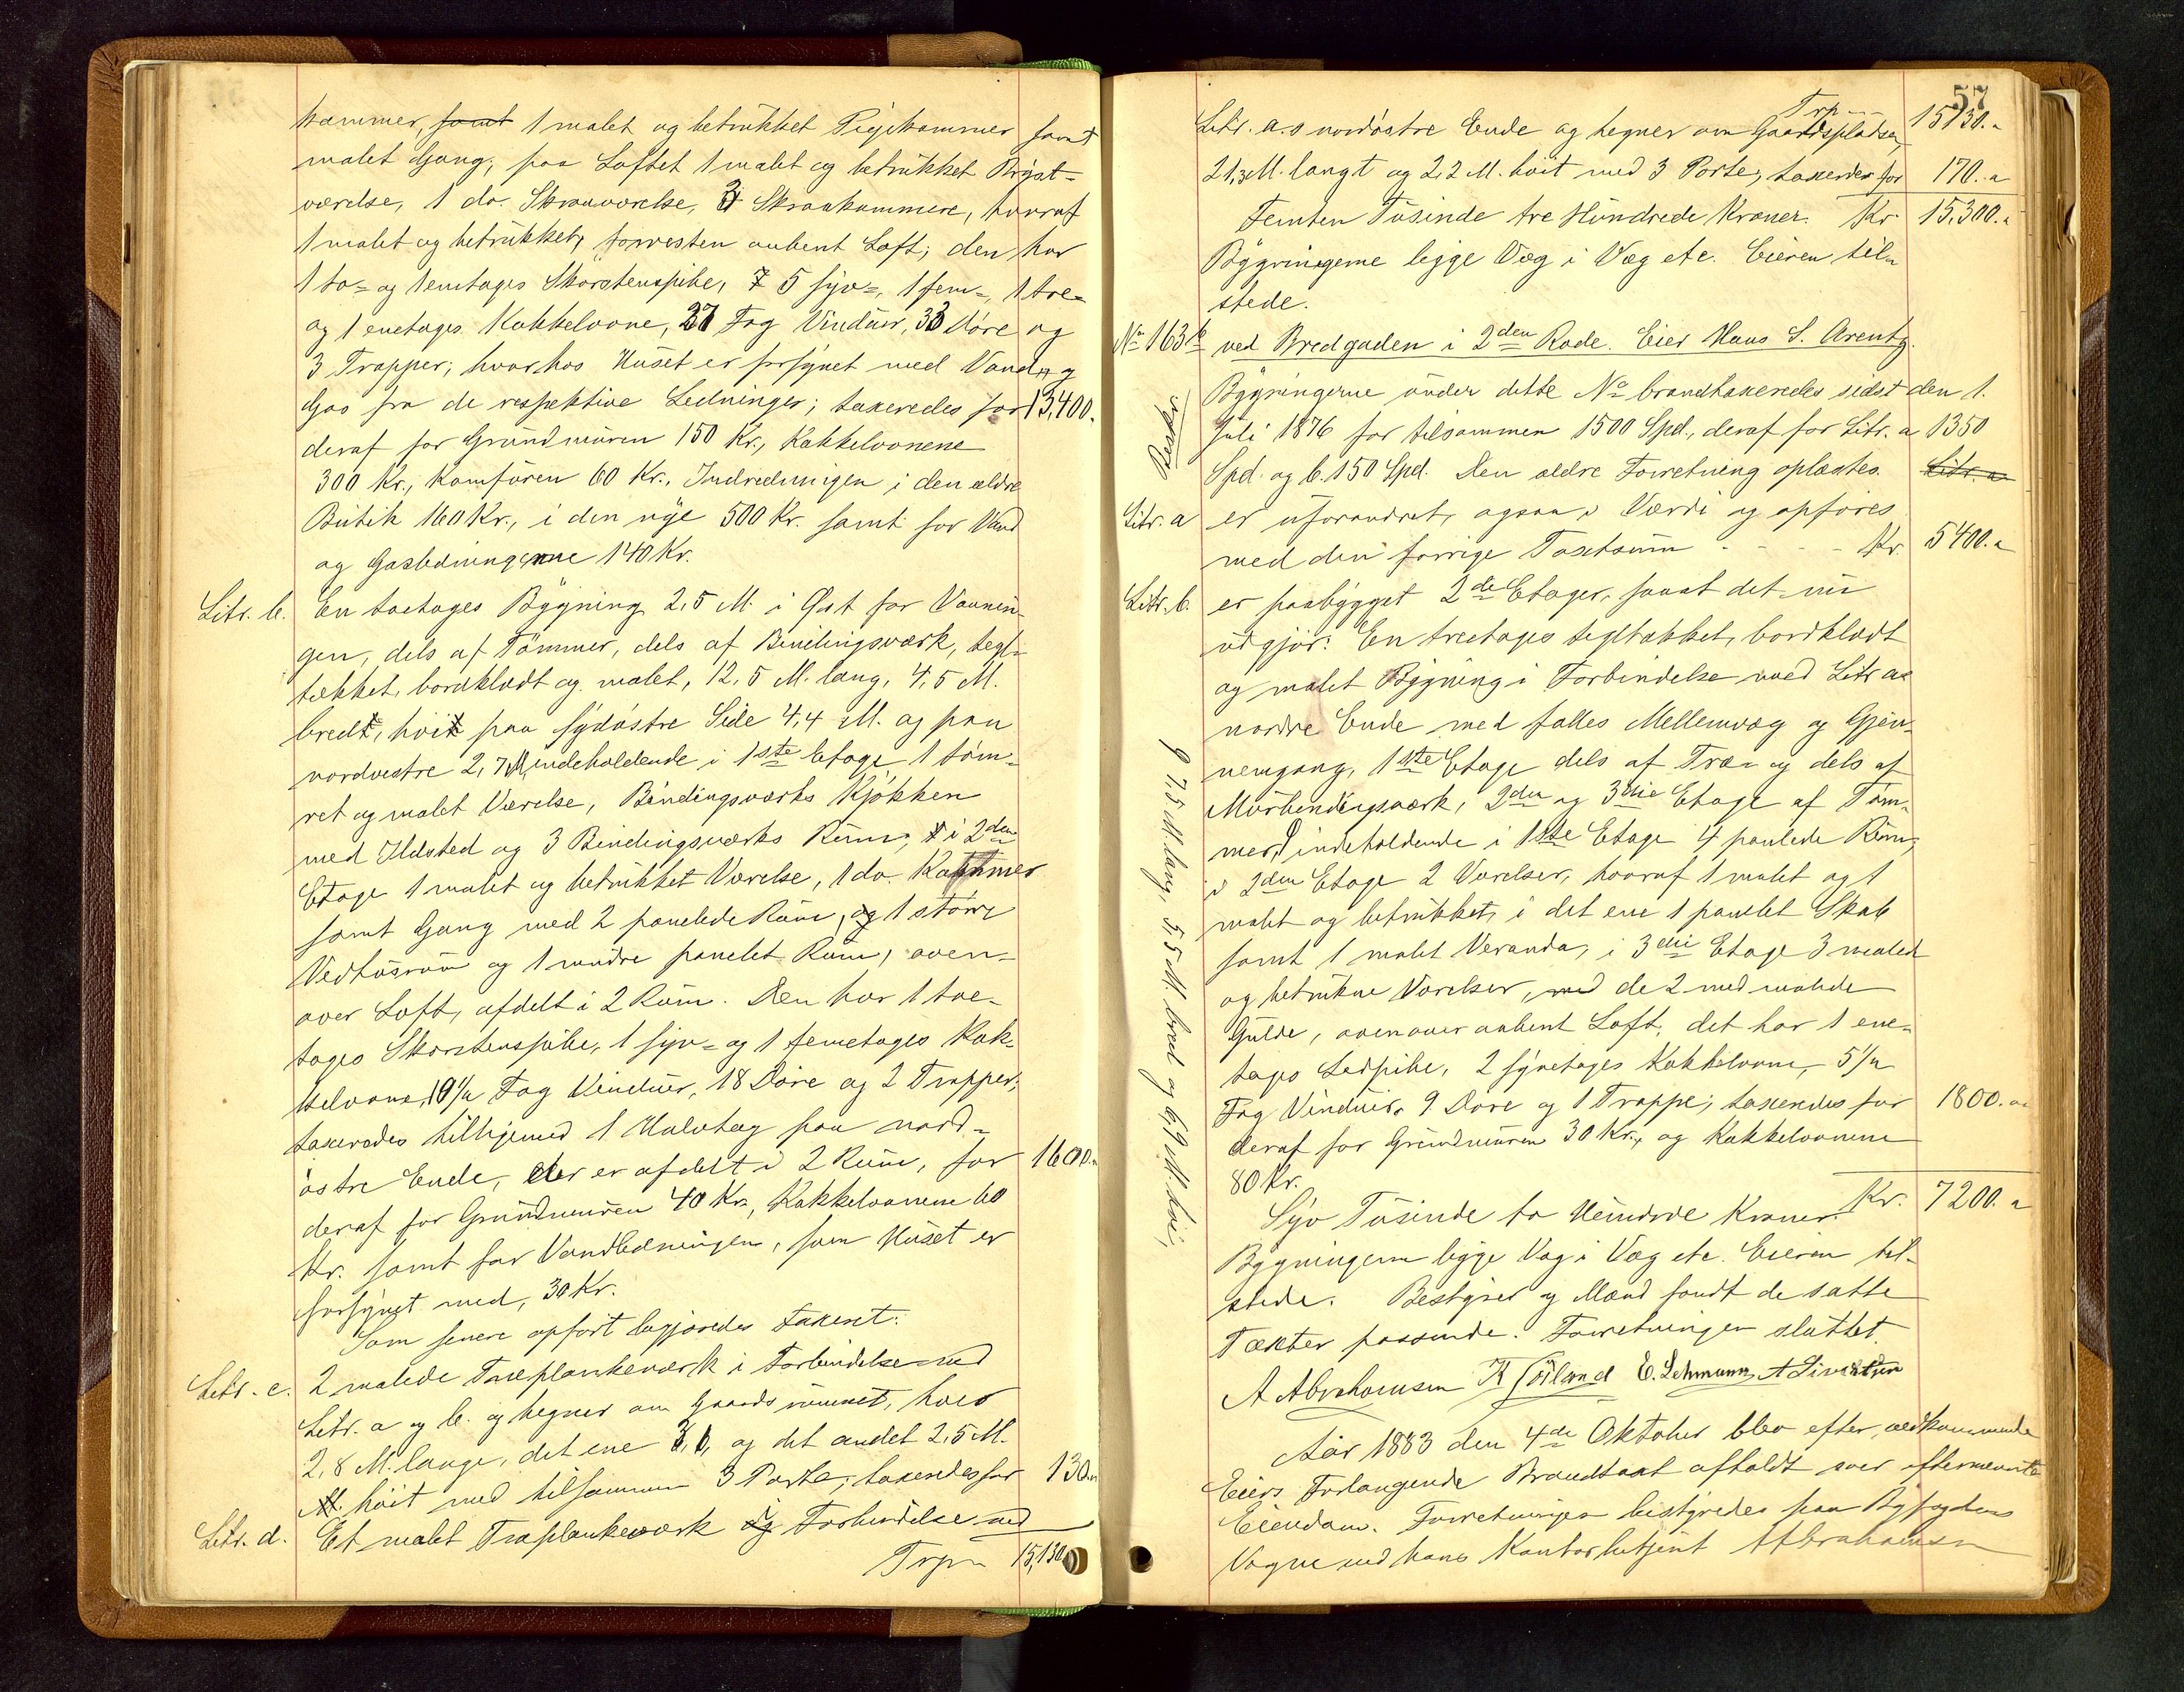 kammer, samt 1 malet og betrukket Pigekammer samt
malet Gang, paa Loftet 1 malet og betrukket Kvist-
værelse, 1 do. Skraaværelse, 3 Skraakammere, hvoraf
1 malet og betrukket, forresten aabent Loft; den har
1 to- og 1 enetages Skorstenspibe, 5 syv-, 1 fem-, 1 tre-
og 1 enetages Kakkelovne, 27 Fag Vinduer, 33 Døre og
3 Trapper; hvorhos Huset er forsynet med Vand og
Gas fra de respektive Ledninger; taxeredes for 13,400.
deraf for Grundmuren 150 Kr., Kakkelovnene
300 Kr., Komfuren 60 Kr., Indredningen i den ældre
Butik 160 Kr., i den nye 500 Kr. samt for Vand
og Gasledningerne 140 Kr.
Litr. b. En toetages Bygning 2,5 M. i Øst for Vaanin-
gen, dels af Tømmer, dels af Bindingsværk, tegl-
tækket, bordklædt og malet, 12,5 M. lang, 4,5 M.
bred, høi paa sydøstre Side 4,4 M. og paa
nordvestre 2,7 M, indeholdende i 1ste Etage 1 tøm-
ret og malet Værelse, Bindingsværks Kjøkken
med Ildsted og 3 Bindingsværks Rum, i 2den
Etage 1 malet og betrukket Værelse, 1 do. Kammer
samt Gang med 2 panelede Rum, og 1 større
Vedhusrum og 1 mindre panelet Rum, oven-
over Loft, afdelt i 2 Rum. Den har 1 toe-
tages Skorstenspibe, 1 syv- og 1 femetages Kak-
kelovne, 10 1/2 Fag Vinduer, 18 Døre og 2 Trapper;
taxeredes tilligemed 1 Halvtag paa nord-
østre Ende, der er afdelt i 2 Rum, for 1600.
deraf for Grundmuren 40 Kr., Kakkelovnene 60
Kr. samt for Vandledningen, som Huset er
forsynet med, 30 Kr.
Som senere opført begjæredes taxeret:
Litr. c. 2 malede Træplankeværk i Forbindelse med
Litr. a og b. og hegner om Gaardsrummet, hver
2,8 M. lange, det ene 3,1, og det andet 2,5 M.
høit med tilsammen 3 Porte; taxeredes for 130.
Litr. d. Et malet Træplankeværk i Forbindelse med
Trp. 15,130.
57
Trp. 15130.
Litr. a.s nordøstre Ende og hegner om Gaardspladsen,
21,3 M. langt og 2,2 M. høit med 3 Porte, taxeredes for 170.
Femten Tusinde tre Hundrede Kroner. Kr. 15,300.
Bygningerne ligge Væg i Væg etc. Eieren til-
stede.
No 163 b ved Bredgaden i 2den Rode. Eier Hans S. Arentz.
Bygningerne under dette No brandtaxeredes sidst den 1.
Juli 1876 for tilsammen 1500 Spd., deraf for Litr. a 1350
Spd. og b. 150 Spd. Den ældre Forretning oplæstes. Litr. a
Litr. a er uforandret, ogsaa i Værdi og opføres
med den forrige Taxtsum - - - - Kr. 5400.
Litr. b. er paabygget 2de Etager, saaat det nu
udgjør: En treetages tegltækket, bordklædt
og malet Bygning i Forbindelse med Litr. a.s
nordre Ende med fælles Mellemvæg og Gjen-
nemgang, 1ste Etage dels af Træ- og dels af
Murbindingsværk, 2den og 3die Etage af Tøm-
mer, indeholdende i 1ste Etage 4 panlede Rum,
i 2den Etage 2 Værelser, hvoraf 1 malet og 1
malet og betrukket, i det ene 1 panelet Skab
samt 1 malet Veranda, i 3die Etage 3 malede
og betrukne Værelser, de 2 med malede
Gulve, ovenover aabent Loft, det har 1 ene-
tages Ledpibe, 2 syvetages Kakkelovne, 5 1/2
Fag Vinduer, 9 Døre og 1 Trappe; taxeredes for 1800.
deraf for Grundmuren 30 Kr., og Kakkelovnene
80 Kr.
Syv Tusinde to Hundrede Kroner. Kr. 7200.
Bygningerne ligge Væg i Væg etc. Eieren til-
stede. Bestyrer og Mænd fandt de satte
Taxter passende. Forretningen sluttet.
A Abrahamsen E. Lehmann
Aar 1883 den 4de Oktober blev efter vedkommende
Eiers Forlangende Brandtaxt afholdt over efternævnte
Eiendom. Forretningen bestyredes paa Byfogdens
Vegne ved hans Kontorbetjent A Abrahamsen
7,5 M. lang, 5,5 M. bred og 6,9 M. høi,